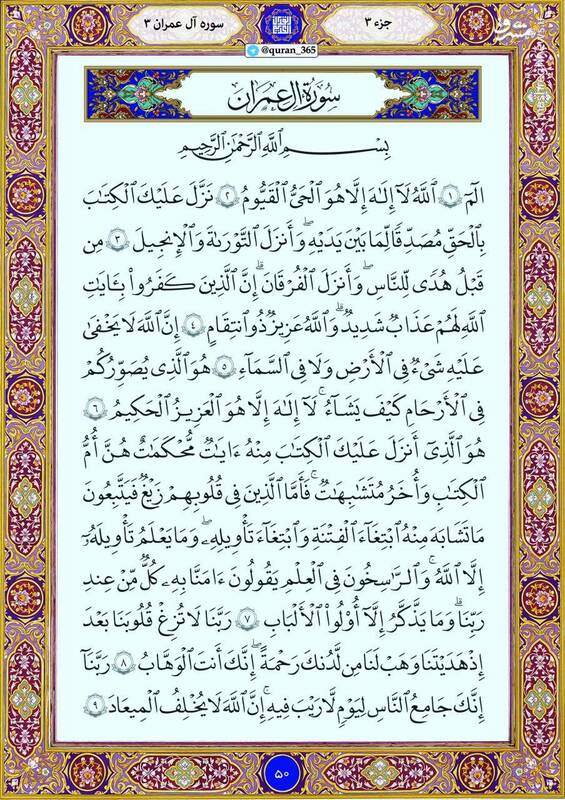 جزء ۳
سوره آل عمران ۳
@quran_365
سُورَةُ آلِ عِمْرَان
بِسْمِ ٱللَّهِ ٱلرَّحْمَٰنِ ٱلرَّحِيمِ
الٓمٓ ۝١ ٱللَّهُ لَآ إِلَٰهَ إِلَّا هُوَ ٱلْحَىُّ ٱلْقَيُّومُ ۝٢ نَزَّلَ عَلَيْكَ ٱلْكِتَٰبَ
بِٱلْحَقِّ مُصَدِّقًا لِّمَا بَيْنَ يَدَيْهِ وَأَنزَلَ ٱلتَّوْرَىٰةَ وَٱلْإِنجِيلَ ۝٣ مِن
قَبْلُ هُدًى لِّلنَّاسِ وَأَنزَلَ ٱلْفُرْقَانَ ۗ إِنَّ ٱلَّذِينَ كَفَرُوا۟ بِـَٔايَٰتِ
ٱللَّهِ لَهُمْ عَذَابٌ شَدِيدٌ ۗ وَٱللَّهُ عَزِيزٌ ذُو ٱنتِقَامٍ ۝٤ إِنَّ ٱللَّهَ لَا يَخْفَىٰ
عَلَيْهِ شَىْءٌ فِى ٱلْأَرْضِ وَلَا فِى ٱلسَّمَآءِ ۝٥ هُوَ ٱلَّذِى يُصَوِّرُكُمْ
فِى ٱلْأَرْحَامِ كَيْفَ يَشَآءُ ۚ لَآ إِلَٰهَ إِلَّا هُوَ ٱلْعَزِيزُ ٱلْحَكِيمُ ۝٦
هُوَ ٱلَّذِىٓ أَنزَلَ عَلَيْكَ ٱلْكِتَٰبَ مِنْهُ ءَايَٰتٌ مُّحْكَمَٰتٌ هُنَّ أُمُّ
ٱلْكِتَٰبِ وَأُخَرُ مُتَشَٰبِهَٰتٌ ۖ فَأَمَّا ٱلَّذِينَ فِى قُلُوبِهِمْ زَيْغٌ فَيَتَّبِعُونَ
مَا تَشَٰبَهَ مِنْهُ ٱبْتِغَآءَ ٱلْفِتْنَةِ وَٱبْتِغَآءَ تَأْوِيلِهِۦ ۗ وَمَا يَعْلَمُ تَأْوِيلَهُۥٓ
إِلَّا ٱللَّهُ ۗ وَٱلرَّٰسِخُونَ فِى ٱلْعِلْمِ يَقُولُونَ ءَامَنَّا بِهِۦ كُلٌّ مِّنْ عِندِ
رَبِّنَا ۗ وَمَا يَذَّكَّرُ إِلَّآ أُو۟لُوا۟ ٱلْأَلْبَٰبِ ۝٧ رَبَّنَا لَا تُزِغْ قُلُوبَنَا بَعْدَ
إِذْ هَدَيْتَنَا وَهَبْ لَنَا مِن لَّدُنكَ رَحْمَةً ۚ إِنَّكَ أَنتَ ٱلْوَهَّابُ ۝٨ رَبَّنَآ
إِنَّكَ جَامِعُ ٱلنَّاسِ لِيَوْمٍ لَّا رَيْبَ فِيهِ ۚ إِنَّ ٱللَّهَ لَا يُخْلِفُ ٱلْمِيعَادَ ۝٩
۵۰